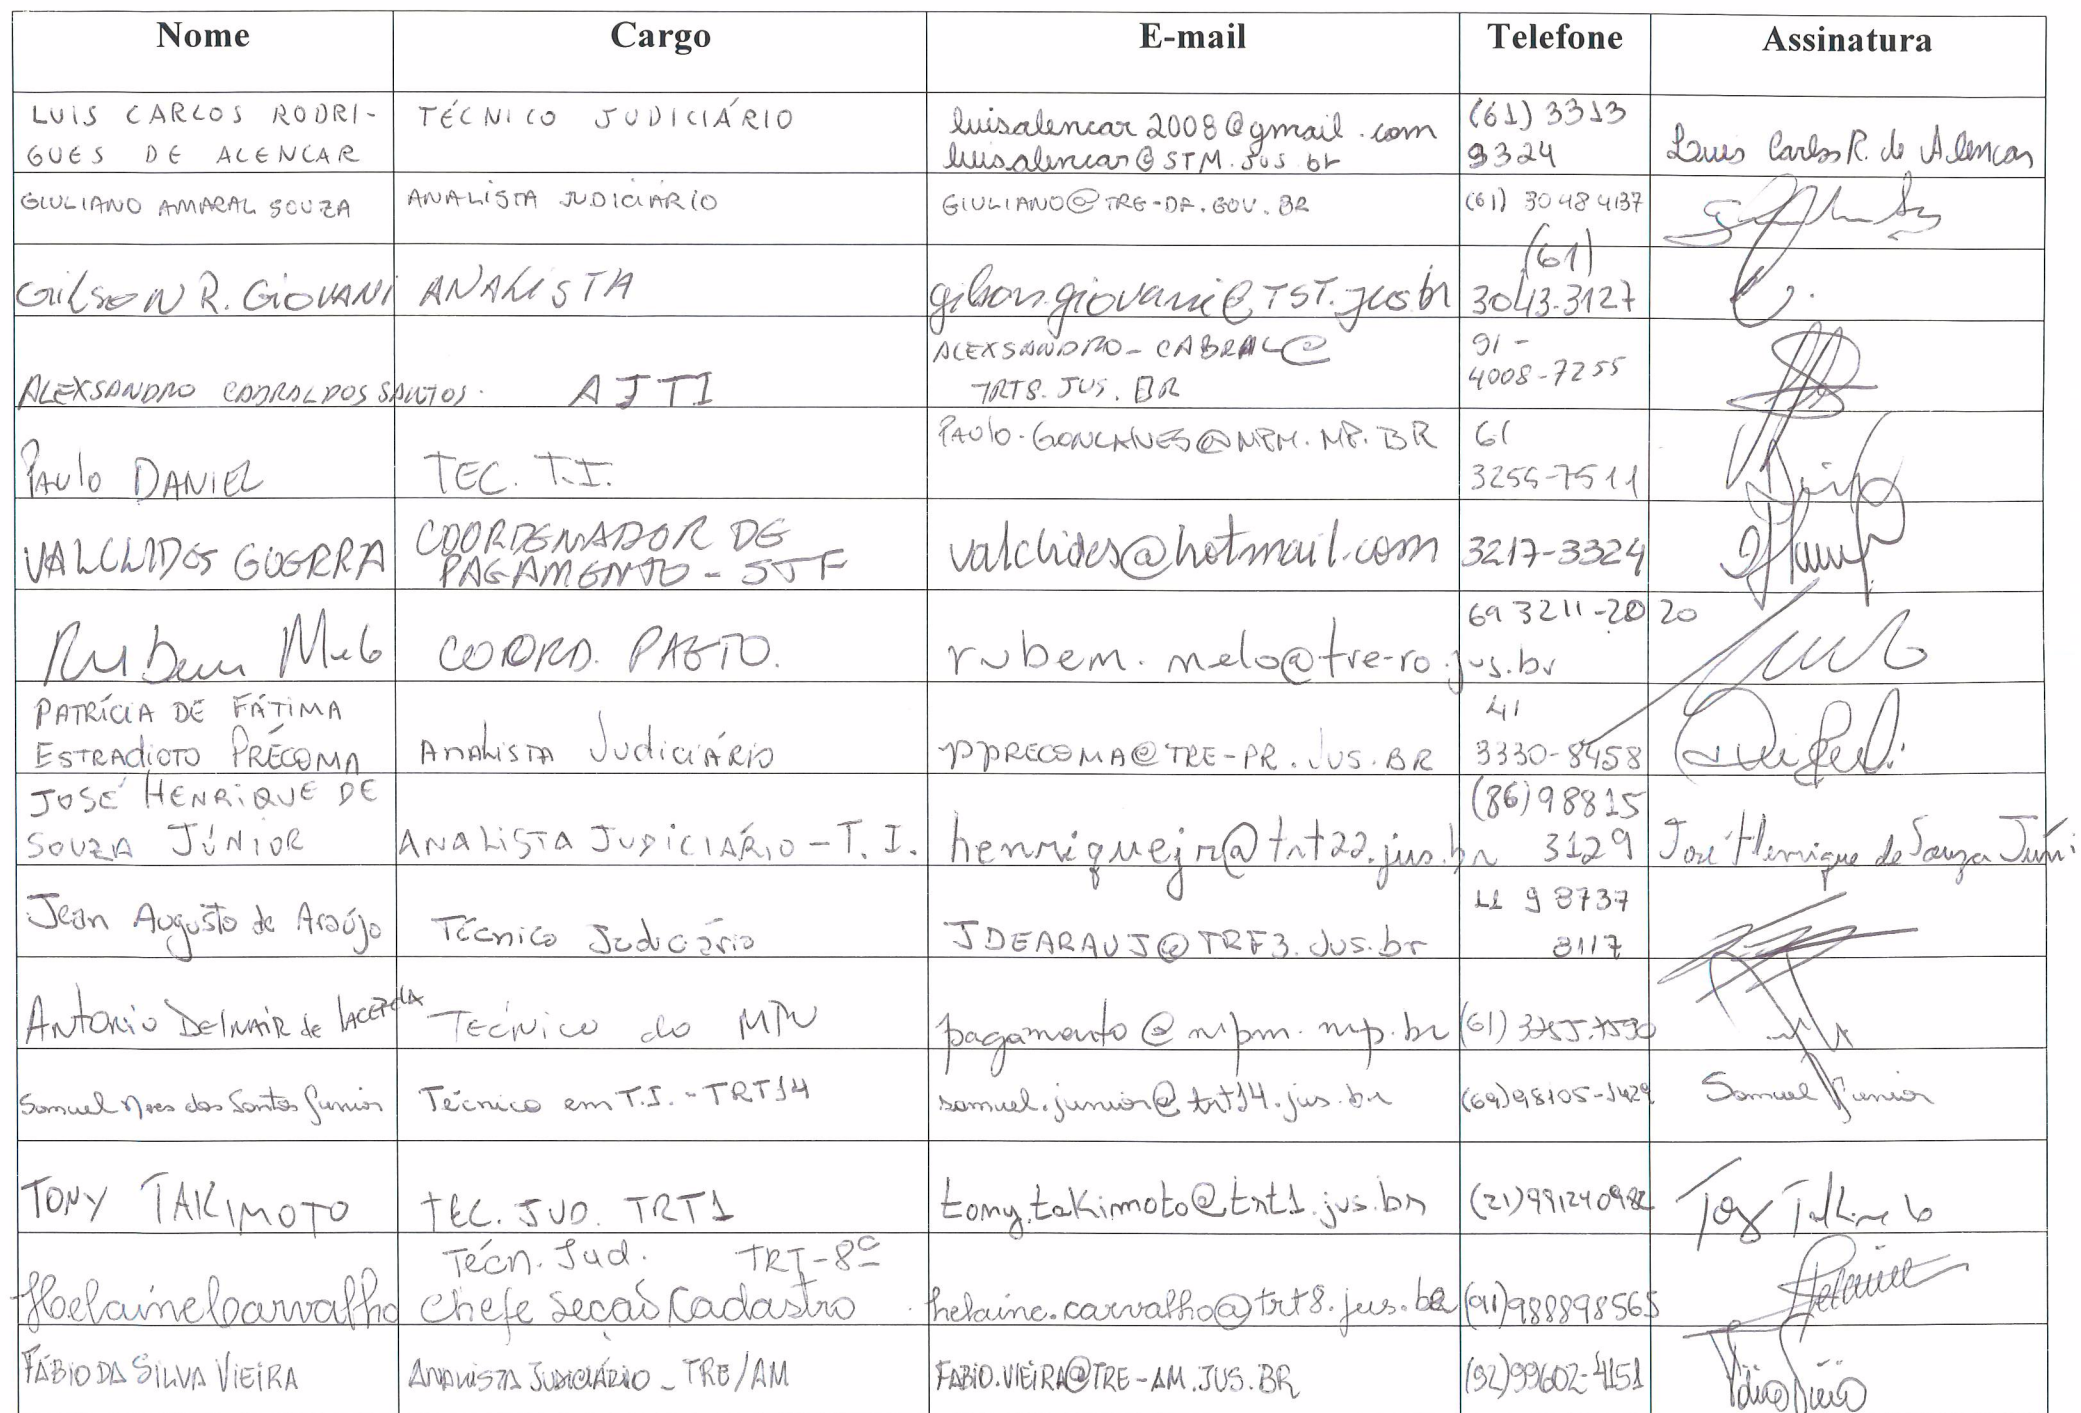 Nome Cargo E-mail Telefone Assinatura
LUIS CARLOS RODRI- TÉCNICO JUDICIÁRIO luisalencar2008@gmail.com (61) 3313
GUES DE ALENCAR luisalencar@STM.JUS.br 9324 Luis Carlos R. de Alencar
GIULIANO AMARAL SOUZA ANALISTA JUDICIÁRIO GIULIANO@TRE-DF.GOV.BR (61) 3048 4137
(61)
GILSON R. GIOVANI ANALISTA gilson.giovani@TST.jus.br 3043-3127
ALEXSANDRO-CABRAL@ 91-
TRT8.JUS.BR 4008-7255
ALEXSANDRO CABRAL DOS SANTOS. AJTI
PAULO.GONCALVES@MPM.MP.BR 61
PAULO DANIEL TEC. T.I. 3255-7511
COORDENADOR DE
VALCLIDES GUERRA PAGAMENTO - STF valclides@hotmail.com 3217-3324
69 3211-2020 20
Rubem Melo COORD. PAGTO. rubem.melo@tre-ro.jus.br
PATRÍCIA DE FÁTIMA 41
ESTRADIOTO PRÉCOMA ANALISTA JUDICIÁRIO PPRECOMA@TRE-PR.JUS.BR 3330-8458
JOSÉ HENRIQUE DE (86) 98815
SOUZA JÚNIOR ANALISTA JUDICIÁRIO - T.I. henriquejr@trt22.jus.br 3129 José Henrique de Souza Júni
Jean Augusto de Araújo Técnico Judiciário JDEARAUJ@TRF3.Jus.br 11 9 8737
8117
Antonio Delnair de Lacerda Técnico do MPU pagamento@mpm.mp.br (61) 3255.7530
Samuel Alves dos Santos Junior Técnico em T.I. - TRT14 samuel.junior@trt14.jus.br (69)98105-1429 Samuel Junior
TONY TAKIMOTO TEC. JUD. TRT1 tony.takimoto@trt1.jus.br (21)991240982 Tony Takimoto
Técn. Jud. TRT-8ª
Helaine Carvalho Chefe Seção Cadastro helaine.carvalho@trt8.jus.br (91)988898565 Helaine
FÁBIO DA SILVA VIEIRA ANALISTA JUDICIÁRIO - TRE/AM FABIO.VIEIRA@TRE-AM.JUS.BR (92)99602-4151